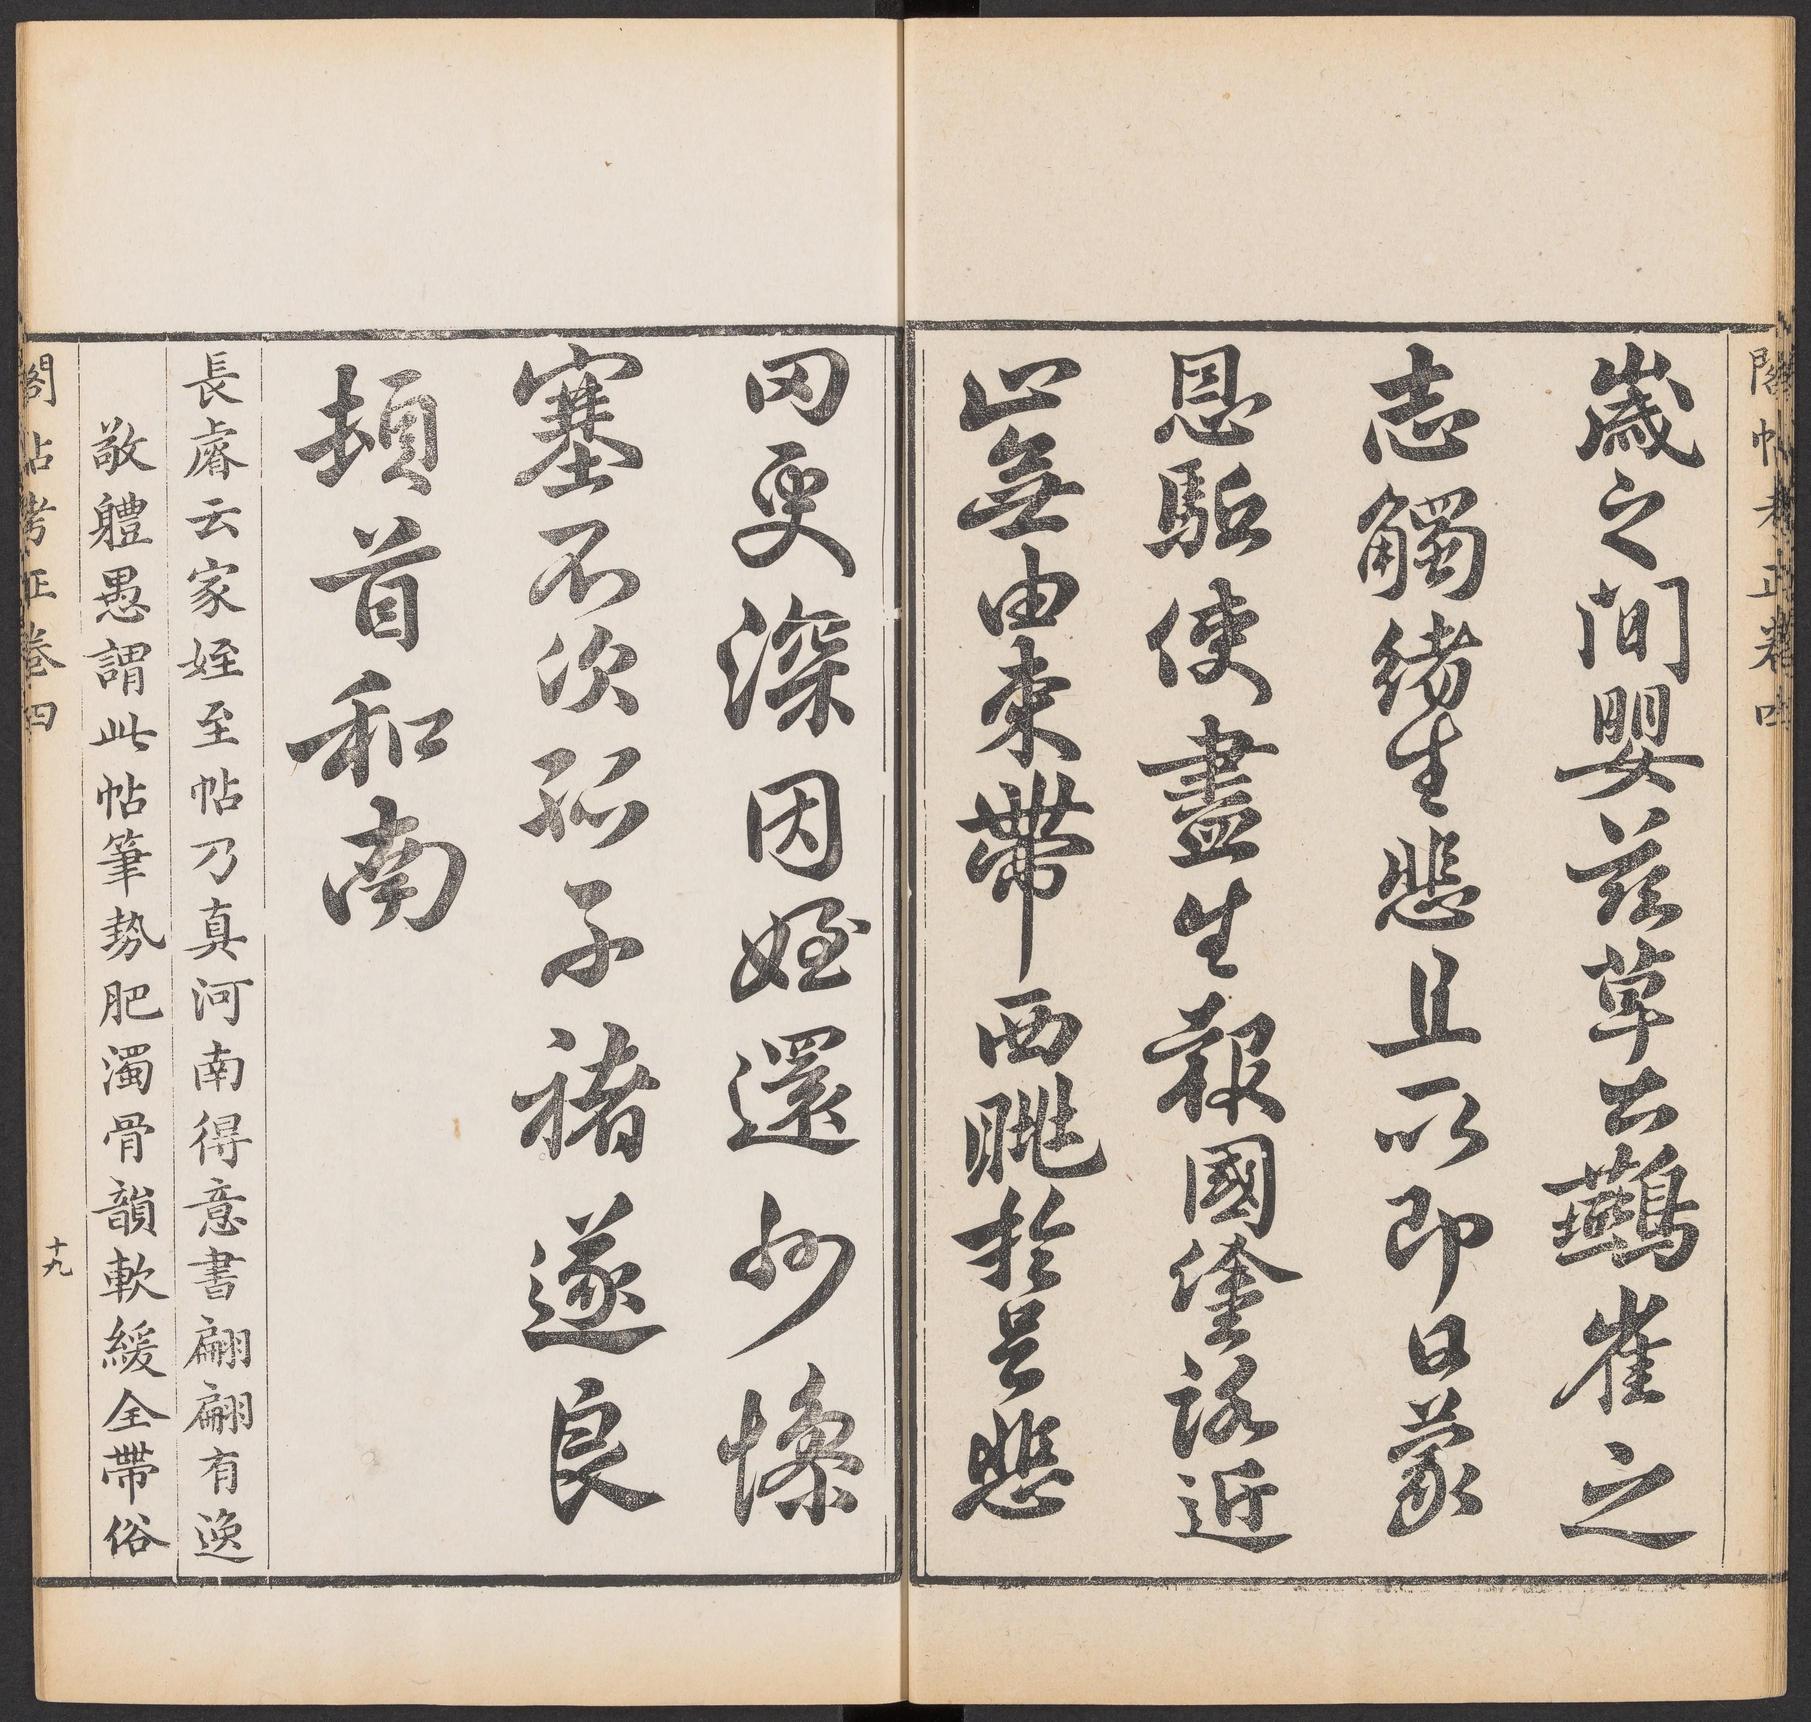 閣帖考正卷四
歲之間嬰茲草土鷰雀之
志觸緒生悲且以即日蒙
恩駈使盡生報國塗路近
止無由束帶西眺於邑悲
罔更深因姪還州慘
塞不次孤子褚遂良
頓首和南
長睿云家姪至帖乃真河南得意書翩翩有逸
敬體愚謂此帖筆勢肥濁骨韻軟緩全帶俗
閣帖考正卷四
十九